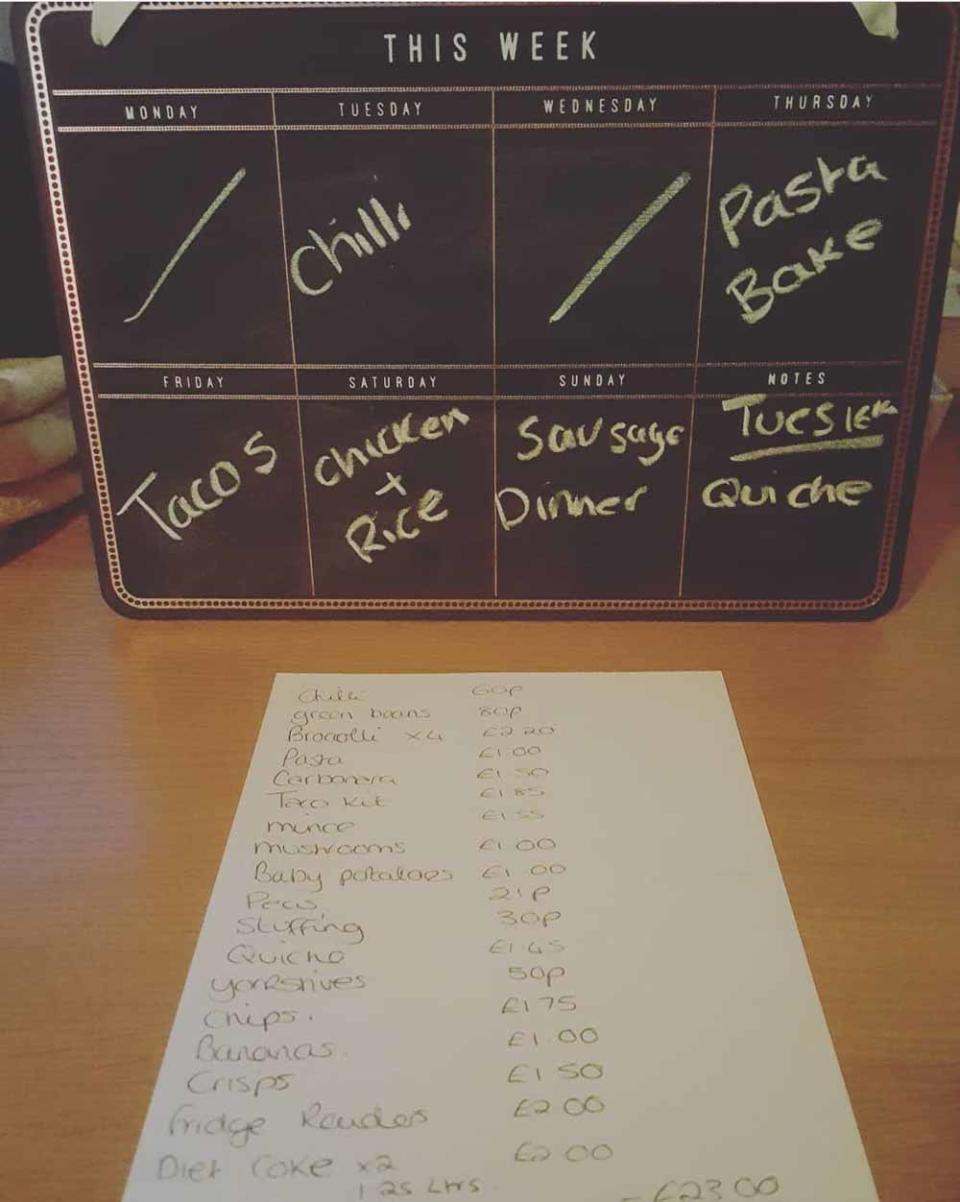 THIS WEEK
MONDAY TUESDAY WEDNESDAY THURSDAY
/ Chilli / Pasta
Bake
FRIDAY SATURDAY SUNDAY NOTES
Tacos Chicken Sausage
+ Dinner
Rice
Quiche
Chilli 60p
green beans 80p
Brocolli x4 £2.20
Pasta £1.00
Carbonara £1.50
Taco kit £1.85
mince £1.55
mushrooms £1.00
Baby potatoes £1.00
Peas 21p
Stuffing 30p
Quiche £1.45
Yorkshires 50p
Chips. £1.75
Bananas. £1.00
Crisps £1.50
Fridge Raiders £2.00
Diet Coke x2 £2.00
1.25 Ltrs. - £23.00